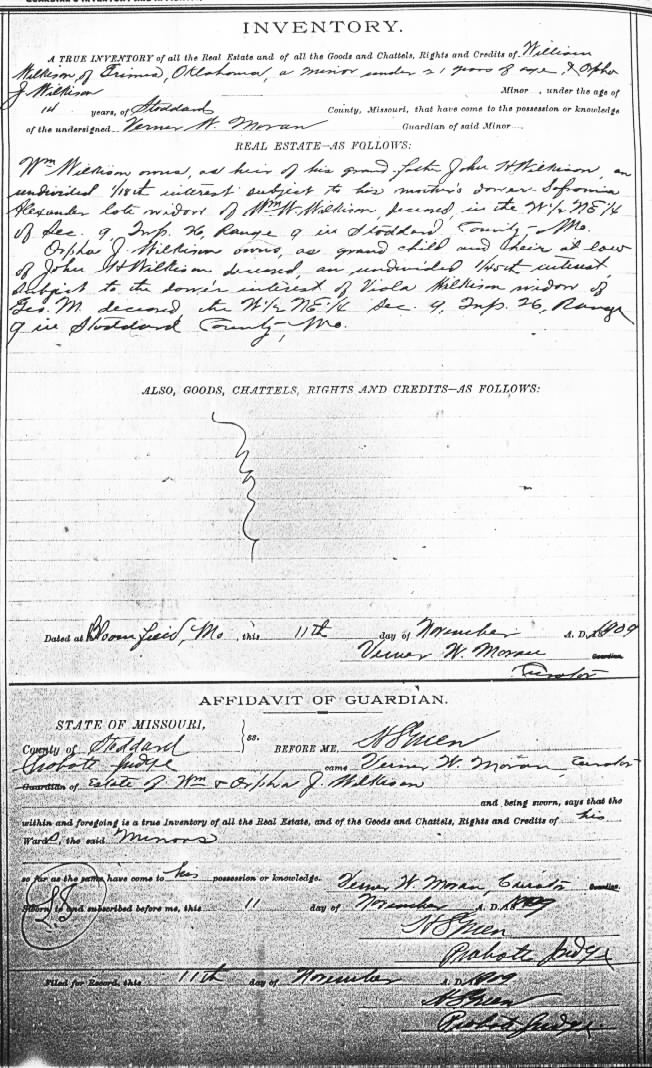 GUARDIAN'S INVENTORY AND
INVENTORY.
A TRUE INVENTORY of all the Real Estate and of all the Goods and Chattels, Rights and Credits of William
Wilkison of Grimes, Oklahoma, a minor under 21 years of age & Orpha
J Wilkison Minor..., under the age of
14 years, of Stoddard County, Missouri, that have come to the possession or knowledge
of the undersigned Verner W. Moran Guardian of said Minor....
REAL ESTATE—AS FOLLOWS:
Wm Wilkison owns, as heir of his grand father John H Wilkison, an
undivided 1/18th interest subject to his mother's dower. Sofronia
Alexander late widow of Wm W Wilkison, deceased, in the W 1/2 NE 1/4
of Sec. 9, Twp. 26, Range 9 in Stoddard County, Mo.
Orpha J Wilkison owns, as grand child and heir at law
of John H Wilkison deceased, an undivided 1/45th interest,
subject to the dower interest of Viola Wilkison widow of
Geo. M. deceased, the W 1/2 NE 1/4 Sec. 9, Twp. 26, Range
9 in Stoddard County, Mo.
ALSO, GOODS, CHATTELS, RIGHTS AND CREDITS—AS FOLLOWS:
None
Dated at Bloomfield, Mo, this 11th day of November A. D. 1909
Verner W. Moran Guardian.
Curator
AFFIDAVIT OF GUARDIAN.
STATE OF MISSOURI,
County of Stoddard ss. BEFORE ME,
Probate Judge came Verner W. Moran, Curator
Guardian of Estate of Wm & Orpha J. Wilkison
and being sworn, says that the
within and foregoing is a true Inventory of all the Real Estate, and of the Goods and Chattels, Rights and Credits of his
Wards, the said Minors
so far as the same have come to his possession or knowledge. Verner W. Moran, Curator Guardian.
Sworn to and subscribed before me, this 11 day of November A. D. 1909
Probate Judge
Filed for Record, this 11th day of November A. D. 1909
Probate Judge